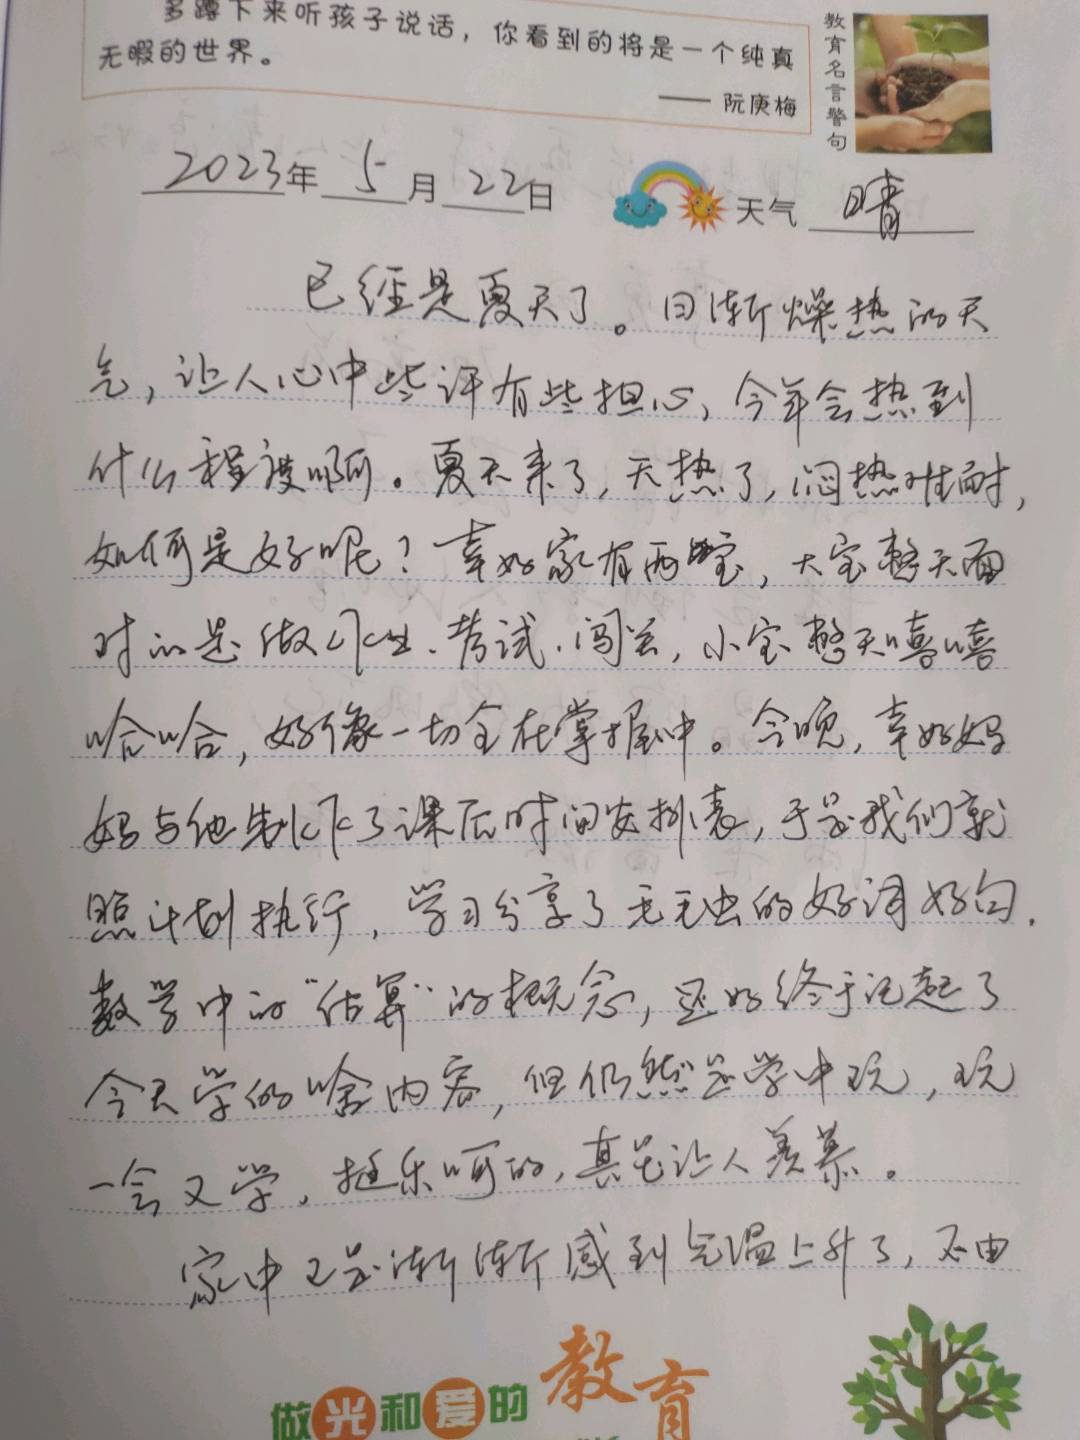 多蹲下来听孩子说话，你看到的将是一个纯真
无暇的世界。
—— 阮庚梅
教育名言警句
2023年 5月 22日 天气 晴
已经是夏天了。日渐燥热的天
气，让人心中些许有些担心，今年会热到
什么程度啊。夏天来了，天热了，闷热难耐，
如何是好呢？幸好家有两宝，大宝整天面
对的是做作业、考试、闯关，小宝整天嘻嘻
哈哈，好像一切全在掌握中。今晚，幸好妈
妈与他制作了课后时间安排表，于是我们就
照计划执行，学习分享了毛毛虫的好词好句.
数学中的“估算”的概念，还好终于记起了
今天学的啥内容，但仍然是学中玩，玩
一会又学，挺乐呵的，真是让人羡慕。
家中又是渐渐感到气温上升了，不由
做光和爱的教育